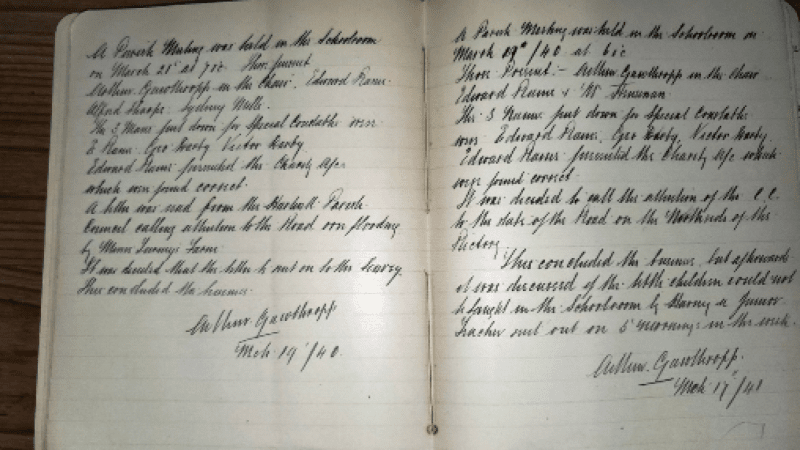 A Parish Meeting was held in the Schoolroom
on March 21st at 7 o'c. Those present
Arthur Gawthropp in the Chair, Edward
Alfred Sharpe, Sydney
The 3 Names put down for Special Constable were
E. Geo Victor
Edward presented the Charity a/cs
which were found correct.
A letter was read from the Parish
Council calling attention to the Road flooding
by
It was decided that the letter be sent on to the
This concluded the business.
Arthur Gawthropp
Mch 19/40.
A Parish Meeting was held in the Schoolroom on
March 19th/40 at 6 o'c
Those Present:- Arthur Gawthropp in the Chair
Edward & W
The 3 Names put down for Special Constable
were Edward Geo Victor
Edward presented the Charity a/cs which
were found correct
It was decided to call the attention of the C.C.
to the state of the Road on the of the
Rectory.
This concluded the business, but afterwards
it was discussed if the little children could not
be taught in the Schoolroom by Having a Junior
Teacher sent out on 5 mornings in the week.
Arthur Gawthropp.
Mch 17th/41